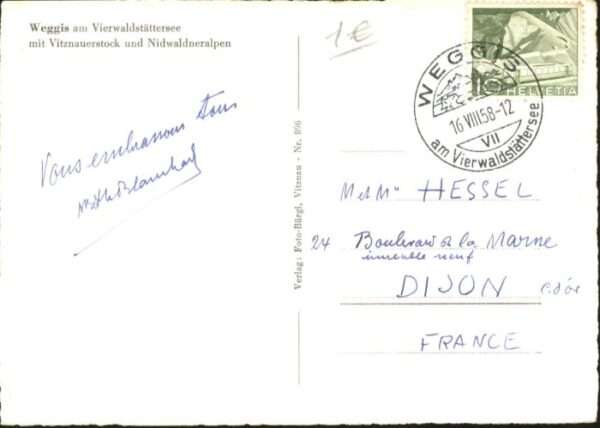 Weggis am Vierwaldstättersee
mit Vitznauerstock und Nidwaldneralpen
1€
HELVETIA
WEGGIS
16 VIII 58-12
VII
am Vierwaldstättersee
Vous embrassons tous
Verlag: Foto-Bürgi, Vitznau - Nr. 896
M et Mme HESSEL
24 Boulevard de la Marne
immeuble neuf
DIJON C.d'or
FRANCE